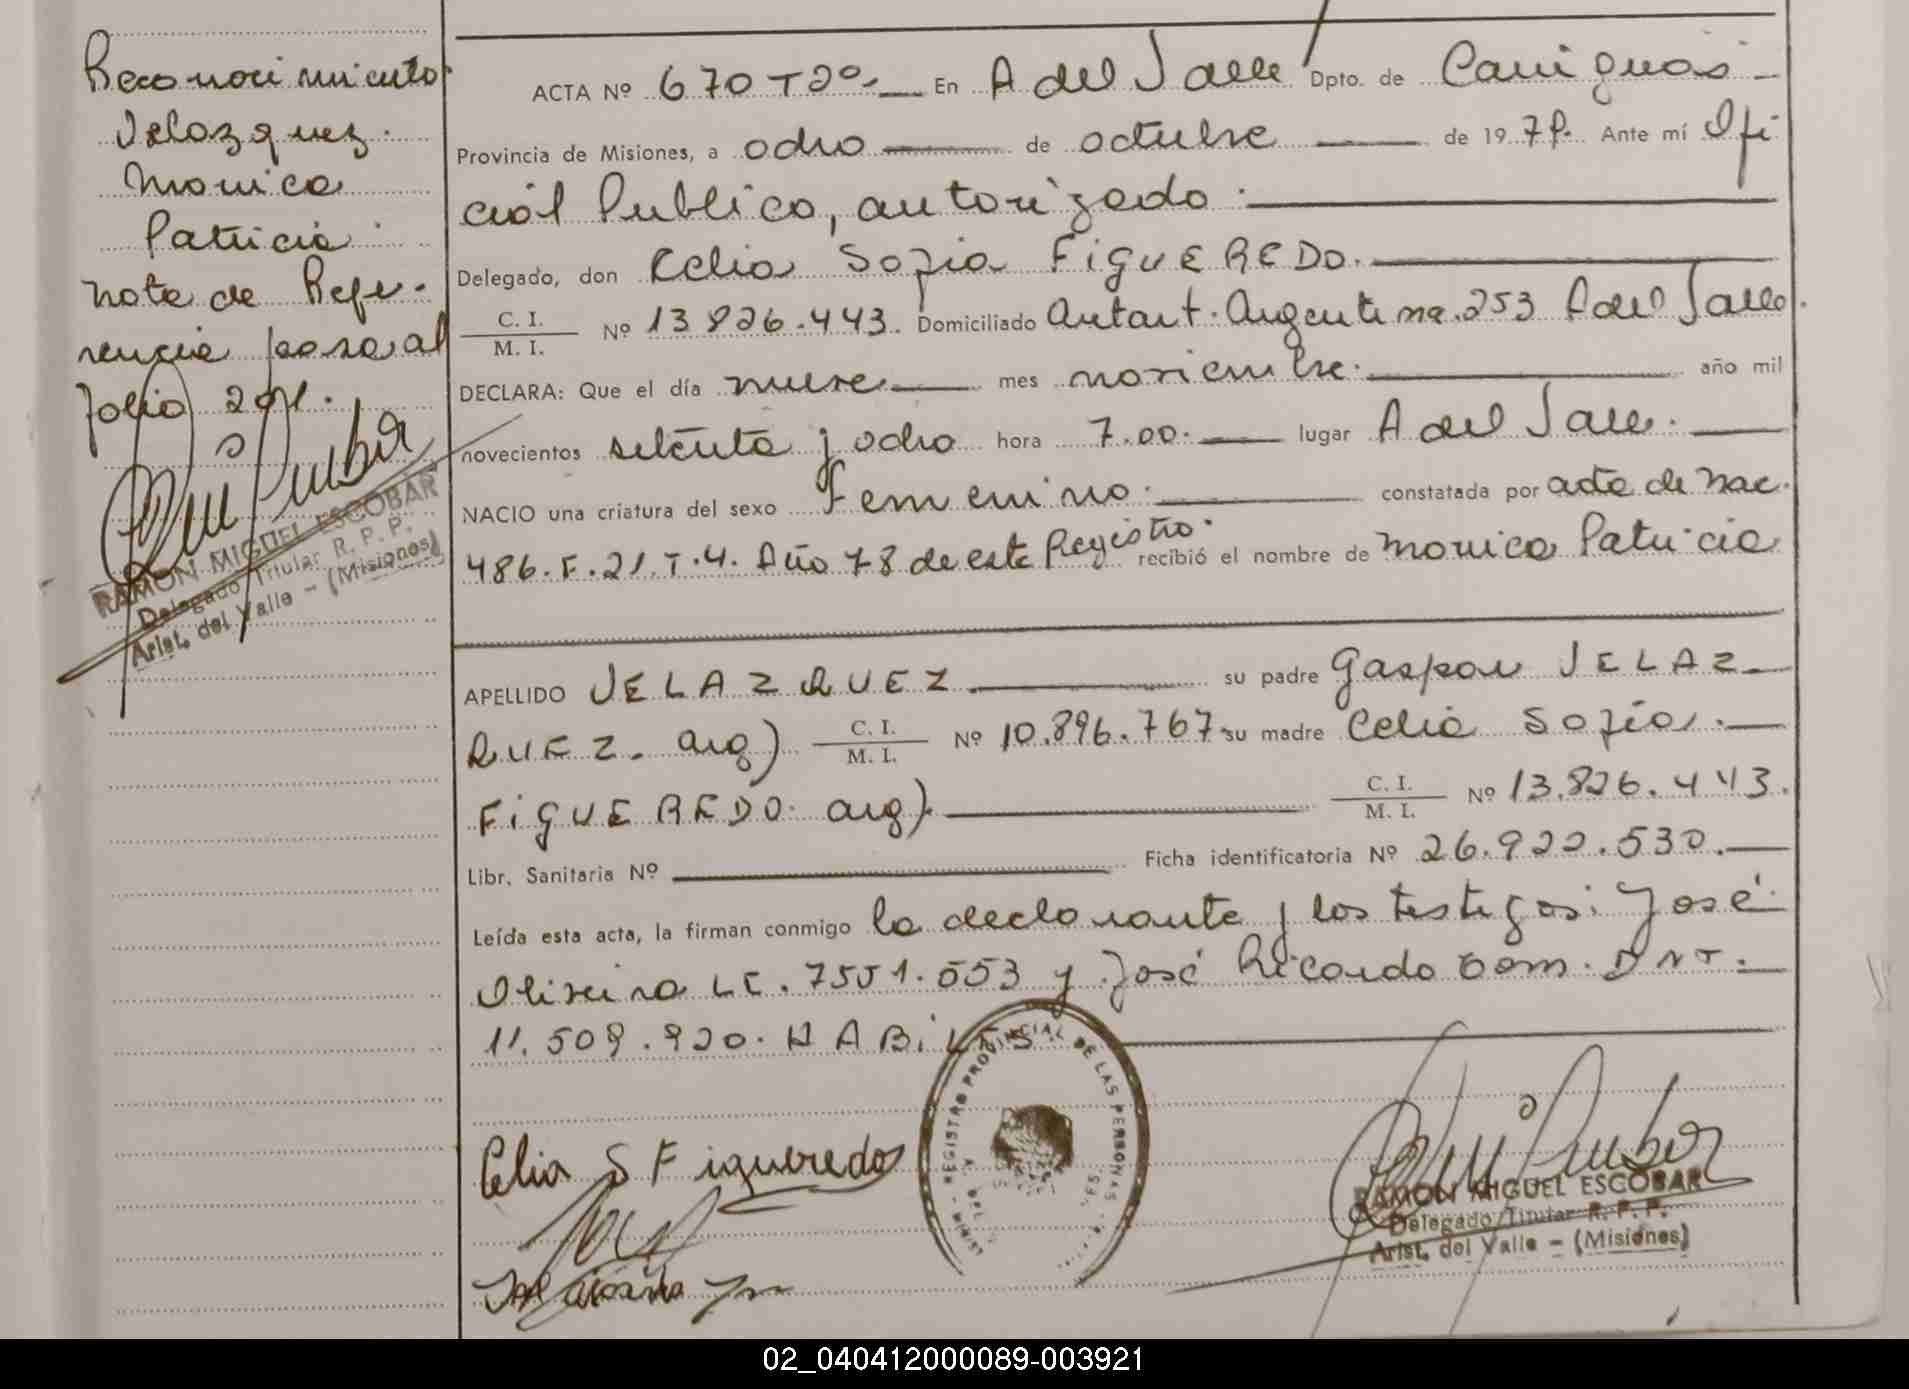 Reconocimiento
Velazquez
Monica
Patricia
nota de Refe-
rencia pasa al
folio
RAMON MIGUEL ESCOBAR
Delegado Titular R. P. P.
Arist. del Valle - (Misiones)
ACTA Nº 670 T 2º En A del Valle Dpto. de Cainguás
Provincia de Misiones, a ocho de octubre de 19 Ante mí Ofi
cial Publico, autorizado
Delegado, don Celia Sofia FiGUEREDO.
C. I.
M. I. Nº 13.826.443. Domiciliado Antart. Argentina. 253 A del Valle.
DECLARA: Que el día nueve mes noviembre año mil
novecientos setenta y ocho hora 7.00. lugar A del Valle.
NACIO una criatura del sexo Femenino. constatada por acta de nac.
486. F. 21. T. 4. Año 78 de este Registro. recibió el nombre de Monica Patricia
APELLIDO VELAZQUEZ su padre Gaspar VELAZ
QUEZ. arg) C. I.
M. I. Nº 10.896.767 su madre Celia Sofia
FiGUEREDO. arg) C. I.
M. I. Nº 13.826.443.
Libr. Sanitaria Nº Ficha identificatoria Nº 26.922.530.
Leída esta acta, la firman conmigo la declarante y los testigos: José
Oliveira LE. 7551.553 y José Ricardo DNI.
11.509.920. HABiLES
REGISTRO PROVINCIAL DE LAS PERSONAS
Celia S Figueredo
RAMON MIGUEL ESCOBAR
Delegado Titular R. P. P.
Arist. del Valle - (Misiones)
02_040412000089-003921